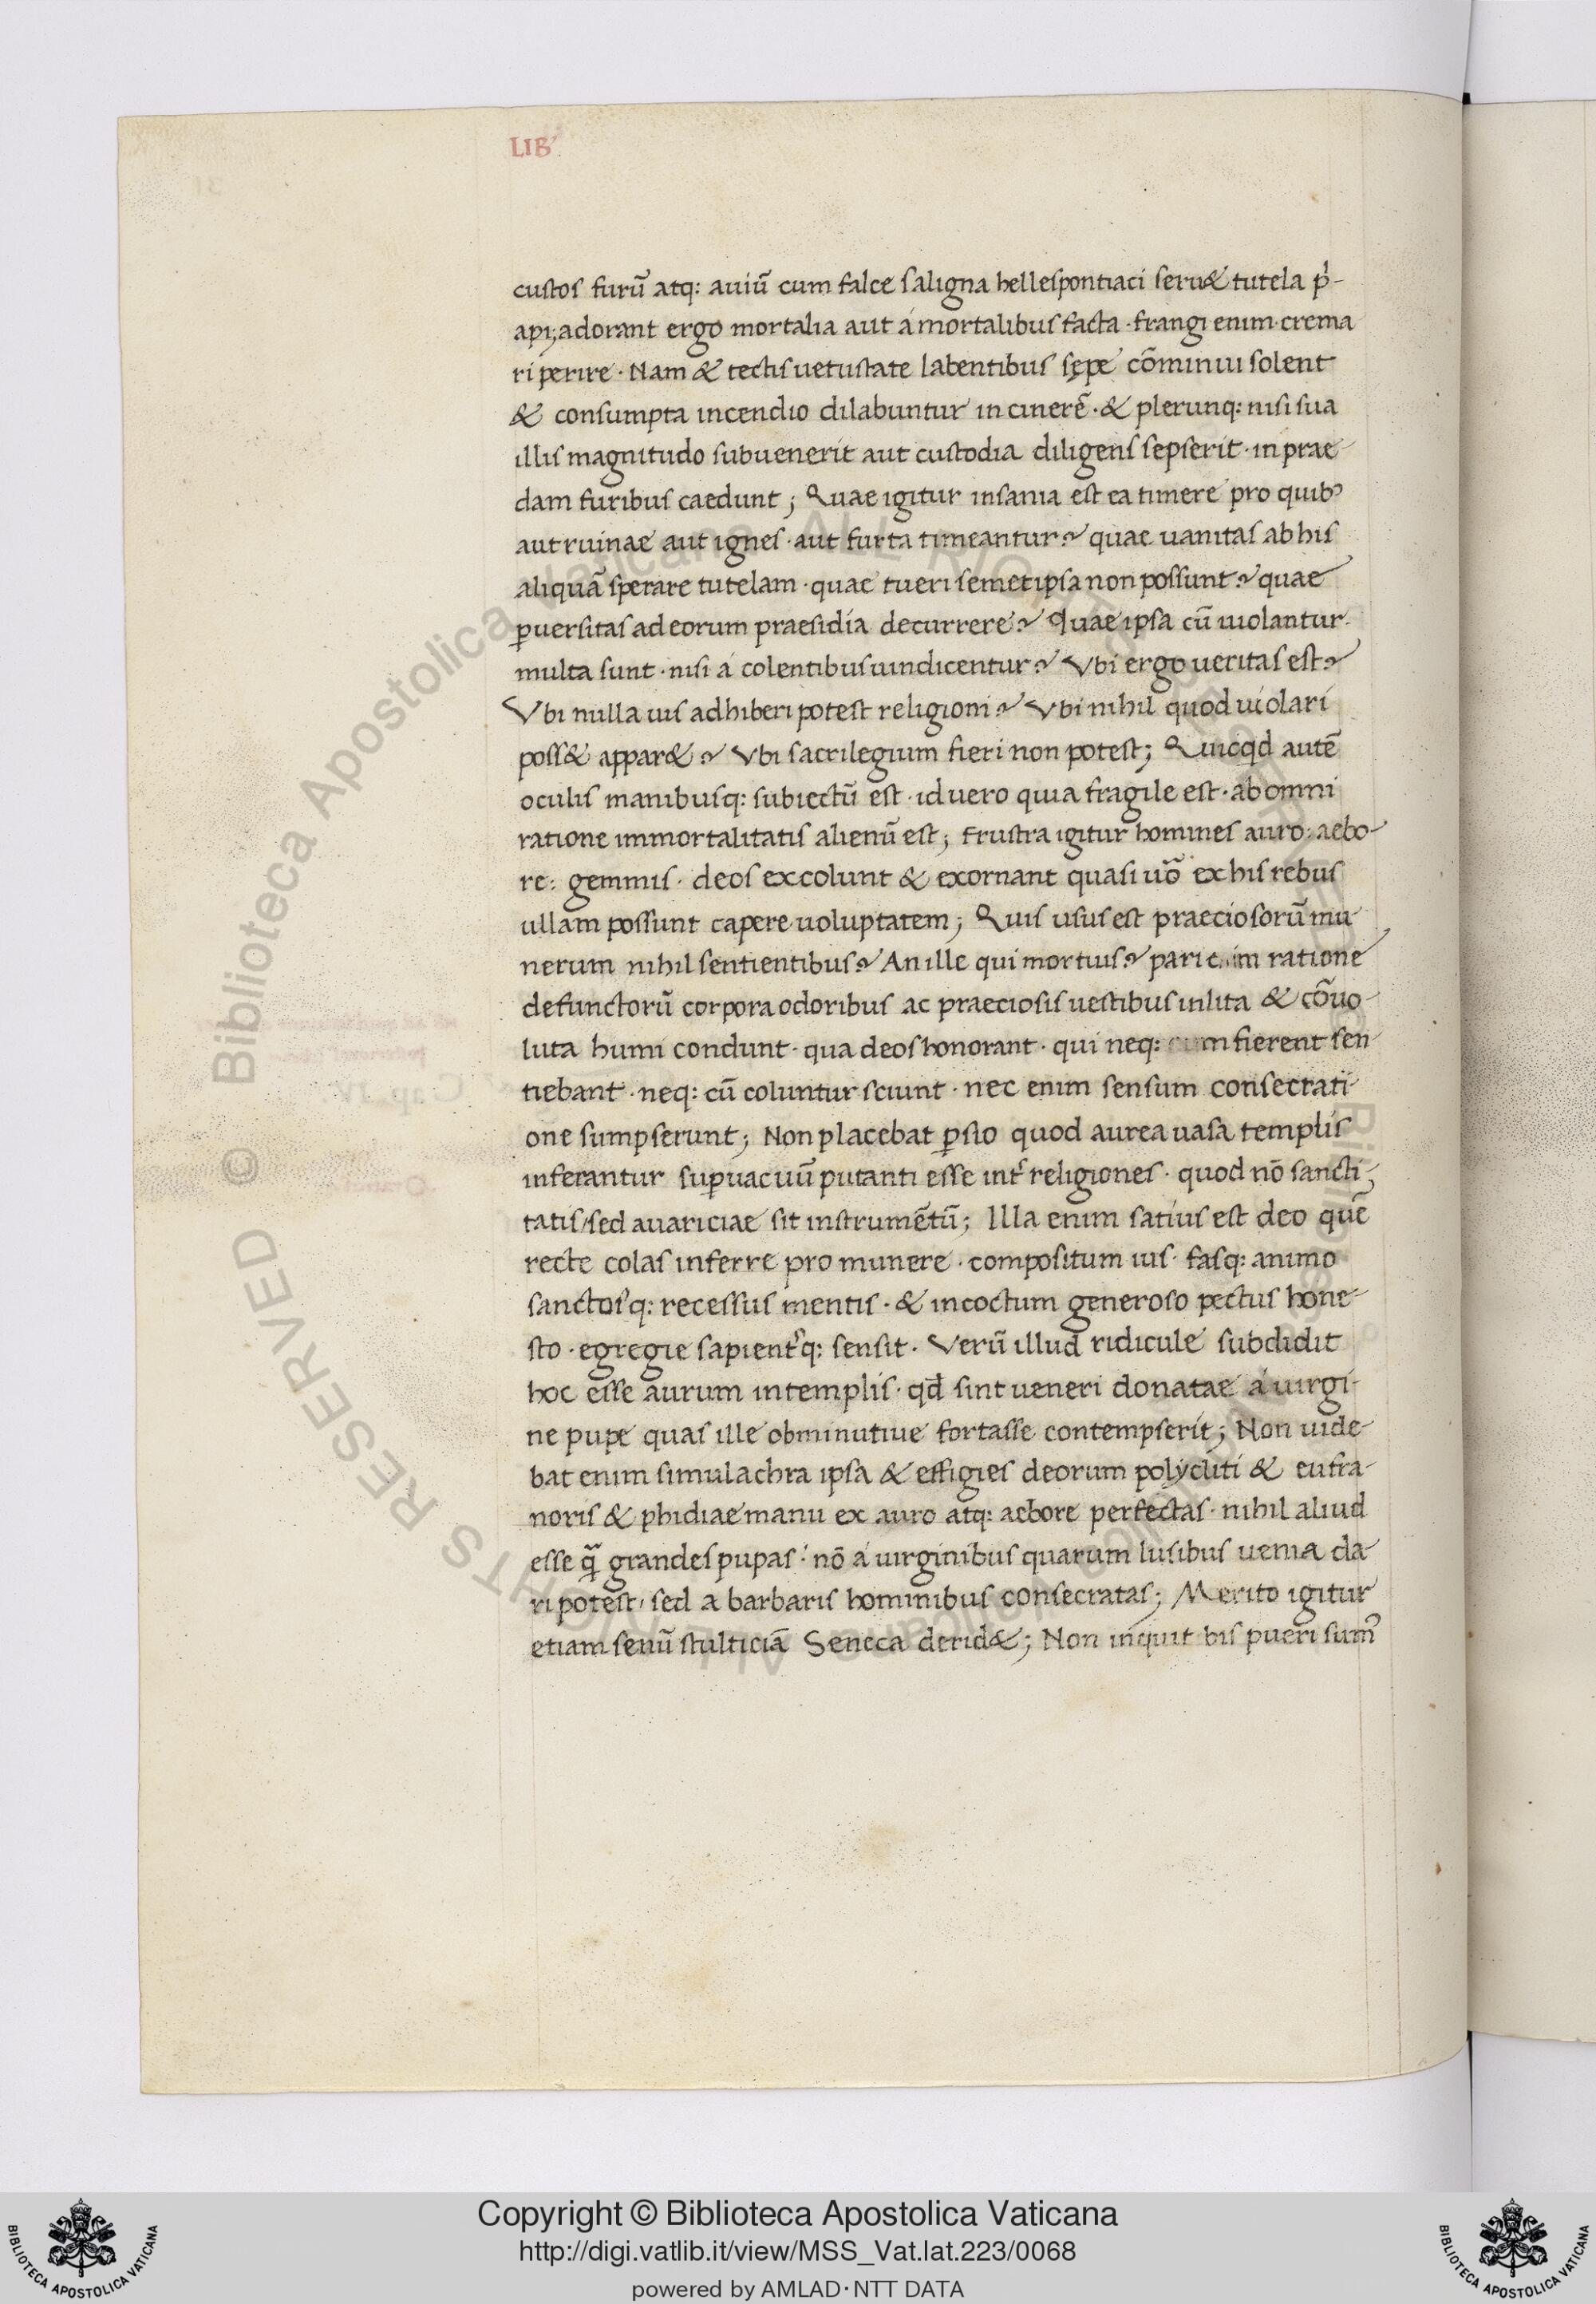 LIB
custos furū atq: auiū cum falce saligna hellespontiaci seru& tutela p̍-
api; adorant ergo mortalia aut á mortalibus facta · frangi enim · crema
ri perire · Nam & tectis uetustate labentibus sępe cōminui solent
& consumpta incendio dilabuntur in cinerē · & plerunq: nisi sua
illis magnitudo subuenerit aut custodia diligens sepserit · in prae-
dam furibus caedunt; Quae igitur insania est ea timere pro quibꝰ
aut ruinae aut ignes · aut furta timeantur? quae uanitas ab his
aliquā sperare tutelam · quae tueri semet ipsa non possunt? quae
ꝑuersitas ad eorum praesidia decurrere? Quae ipsa cū uiolantur
multa sunt · nisi á colentibus uindicentur? Vbi ergo ueritas est?
Vbi nulla uis adhiberi potest religioni? Vbi nihil quod uiolari
poss& appar&? Vbi sacrilegium fieri non potest; Quicqd autē
oculis manibusq: subiectū est · id uero quia fragile est · ab omni
ratione immortalitatis alienū est; Frustra igitur homines auro: aebo-
re: gemmis · deos excolunt & exornant quasi uō ex his rebus
ullam possunt capere uoluptatem; Quis usus est praeciosorū mu-
nerum nihil sentientibus? An ille qui mortuis? pari enim ratione
defunctorū corpora odoribus ac praeciosis uestibus inlita & cōuo-
luta humi condunt · qua deos honorant · qui neq: cum fierent sen
tiebant · neq: cū coluntur sciunt · nec enim sensum consecrati-
one sumpserunt; Non placebat ꝑsio quod aurea uasa templis
inferantur suꝑuacuū putanti esse int̍ religiones · quod nō sancti-
tatis / sed auariciae sit instrumētū; Illa enim satius est deo quē
recte colas inferre pro munere · compositum ius · fasq: animo
sanctosq: recessus mentis · & incoctum generoso pectus hone-
sto · egregie sapient̍q: sensit · Verū illud ridicule subdidit
hoc esse aurum in templis · qd̄ sint ueneri donatae á uirgi-
ne pupe quas ille ob minutiue fortasse contempserit; Non uide-
bat enim simulachra ipsa & effigies deorum polycliti & eufra-
noris & phidiae manu ex auro atq: aebore perfectas · nihil aliud
esse q̄ grandes pupas: nō á uirginibus quarum lusibus uenia da
ri potest / sed a barbaris hominibus consecratas; Merito igitur
etiam senū stulticiā Seneca derid&; Non inquit bis pueri sumꝰ
Copyright © Biblioteca Apostolica Vaticana
http://digi.vatlib.it/view/MSS_Vat.lat.223/0068
powered by AMLAD·NTT DATA